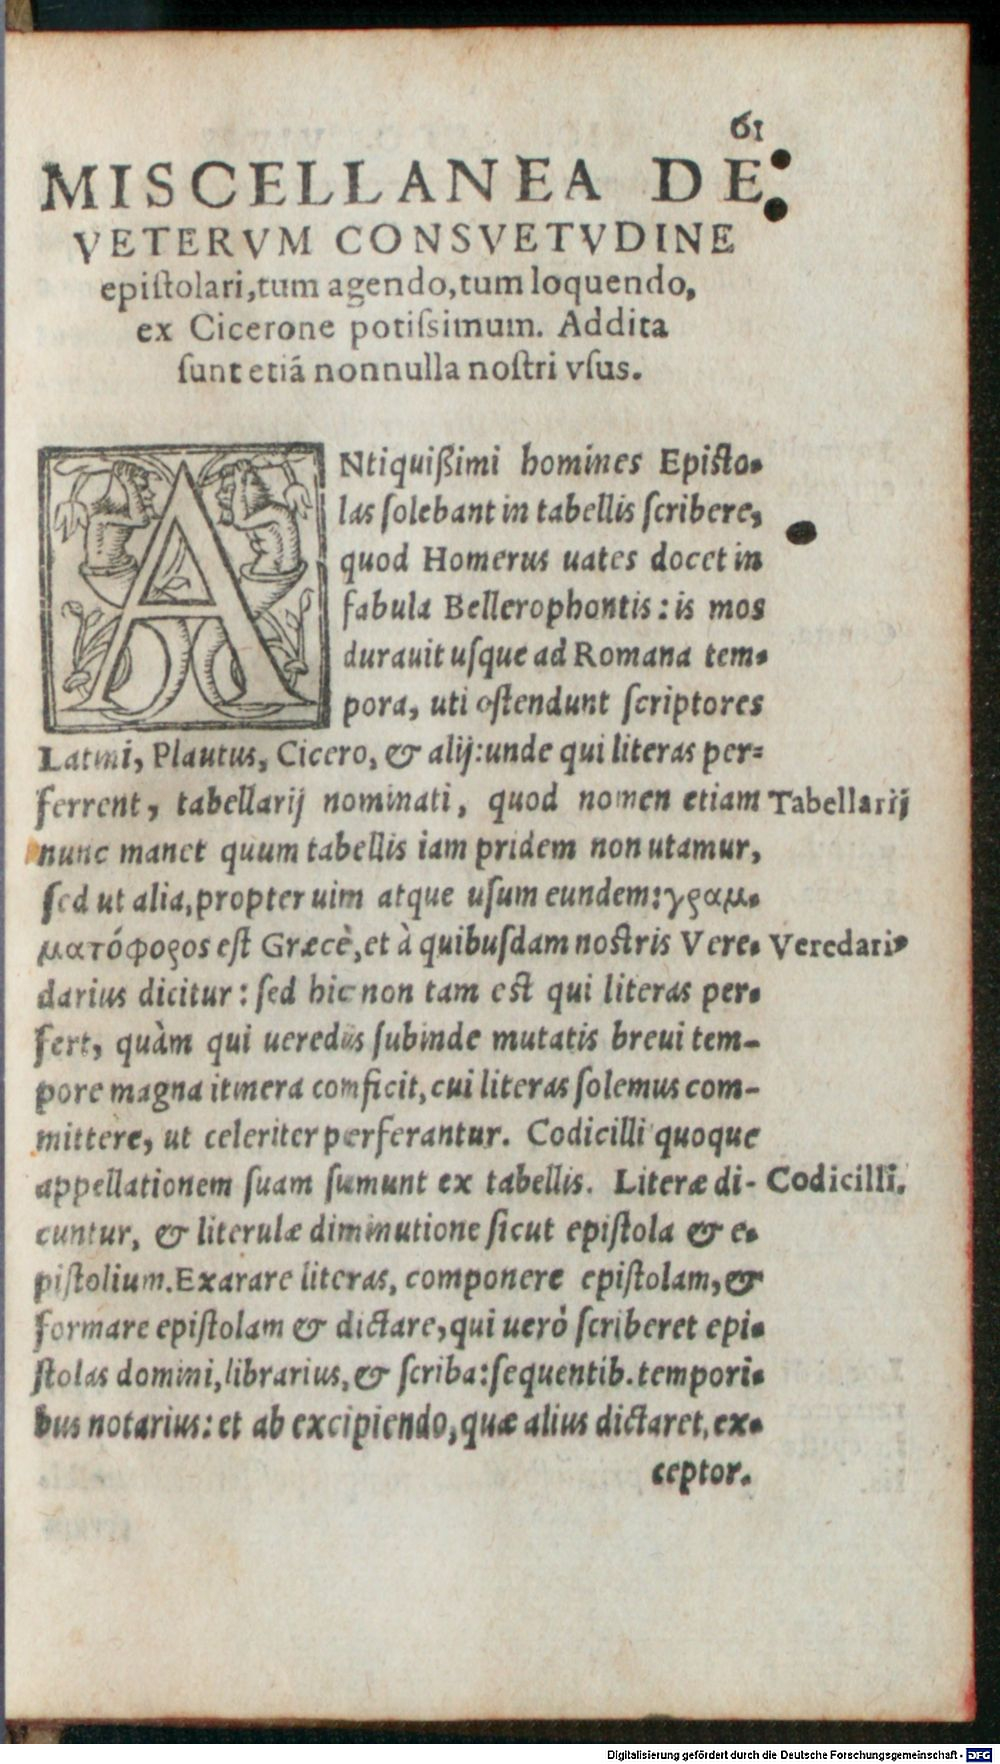 61
MISCELLANEA DE
VETERVM CONSVETVDINE
epistolari, tum agendo, tum loquendo,
ex Cicerone potissimum. Addita
sunt etiã nonnulla nostri vsus.
ANtiquißimi homines Episto-
las solebant in tabellis scribere,
quod Homerus uates docet in
fabula Bellerophontis: is mos
durauit usque ad Romana tem-
pora, uti ostendunt scriptores
Latini, Plautus, Cicero, & alij: unde qui literas per-
ferrent, tabellarij nominati, quod nomen etiam
Tabellarij
nunc manet quum tabellis iam pridem non utamur,
sed ut alia, propter uim atque usum eundem: γραμ-
ματόφορος est Græcè, et à quibusdam nostris Vere-
Veredari⁹
darius dicitur: sed hic non tam est qui literas per-
fert, quàm qui ueredis subinde mutatis breui tem-
pore magna itinera conficit, cui literas solemus com-
mittere, ut celeriter perferantur. Codicilli quoque
appellationem suam sumunt ex tabellis. Literæ di-
Codicilli.
cuntur, & literulæ diminutione sicut epistola & e-
pistolium. Exarare literas, componere epistolam, &
formare epistolam & dictare, qui uerò scriberet epi-
stolas domini, librarius, & scriba: sequentib. tempori-
bus notarius: et ab excipiendo, quæ alius dictaret, ex-
ceptor.
Digitalisierung gefördert durch die Deutsche Forschungsgemeinschaft - DFG